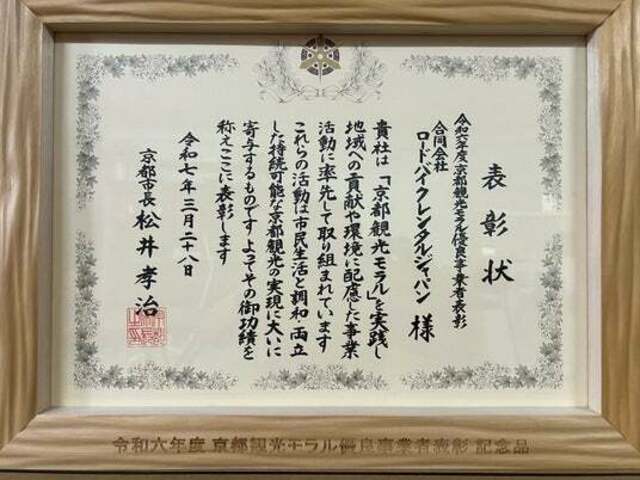 表彰状
令和六年度京都観光モラル優良事業者表彰
合同会社
ロードバイクレンタルジャパン 様
貴社は「京都観光モラル」を実践し
地域への貢献や環境に配慮した事業
活動に率先して取り組まれています
これらの活動は市民生活と調和・両立
した持続可能な京都観光の実現に大いに
寄与するものです よってその御功績を
称えここに表彰します
令和七年三月二十八日
京都市長 松井孝治
令和六年度 京都観光モラル優良事業者表彰 記念品